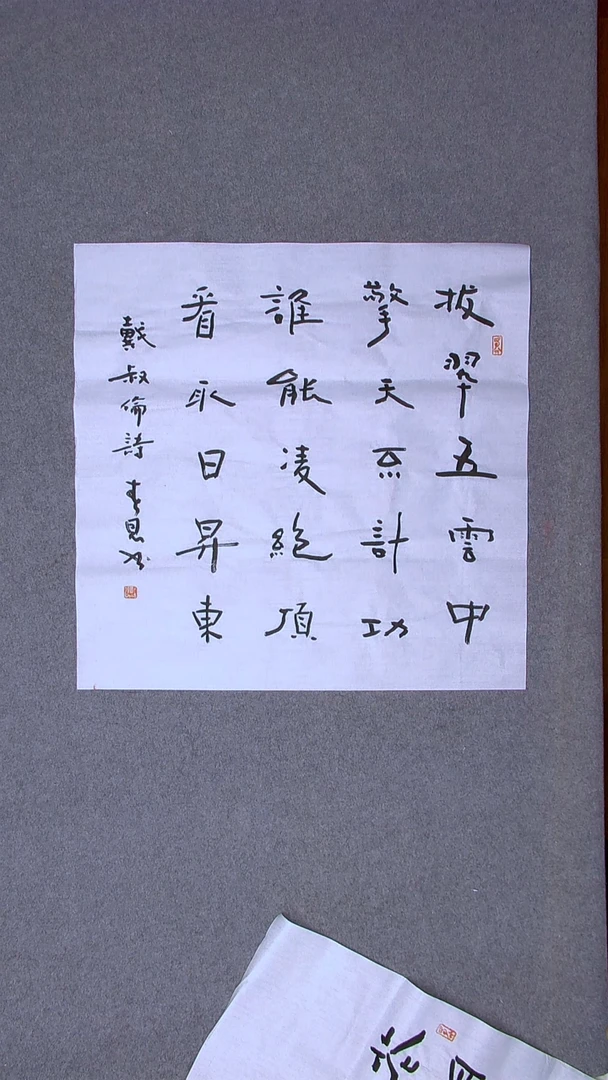 拔翠五雲中
擎天不計功
誰能凌絕頂
看取日昇東
戴叔倫詩